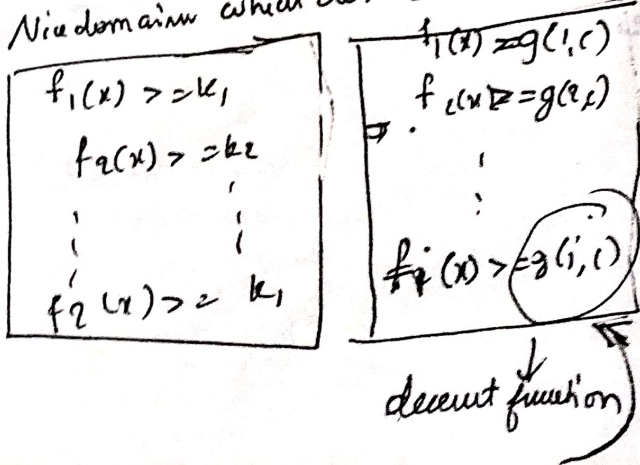 Nice domains which
f₁(x) >= k₁
f₂(x) >= k₂
f₂(x) >= k₁
f₁(x) >= g(1,c)
f₂(x) >= g(2,c)
fᵢ(x) >= g(i,c)
decent function